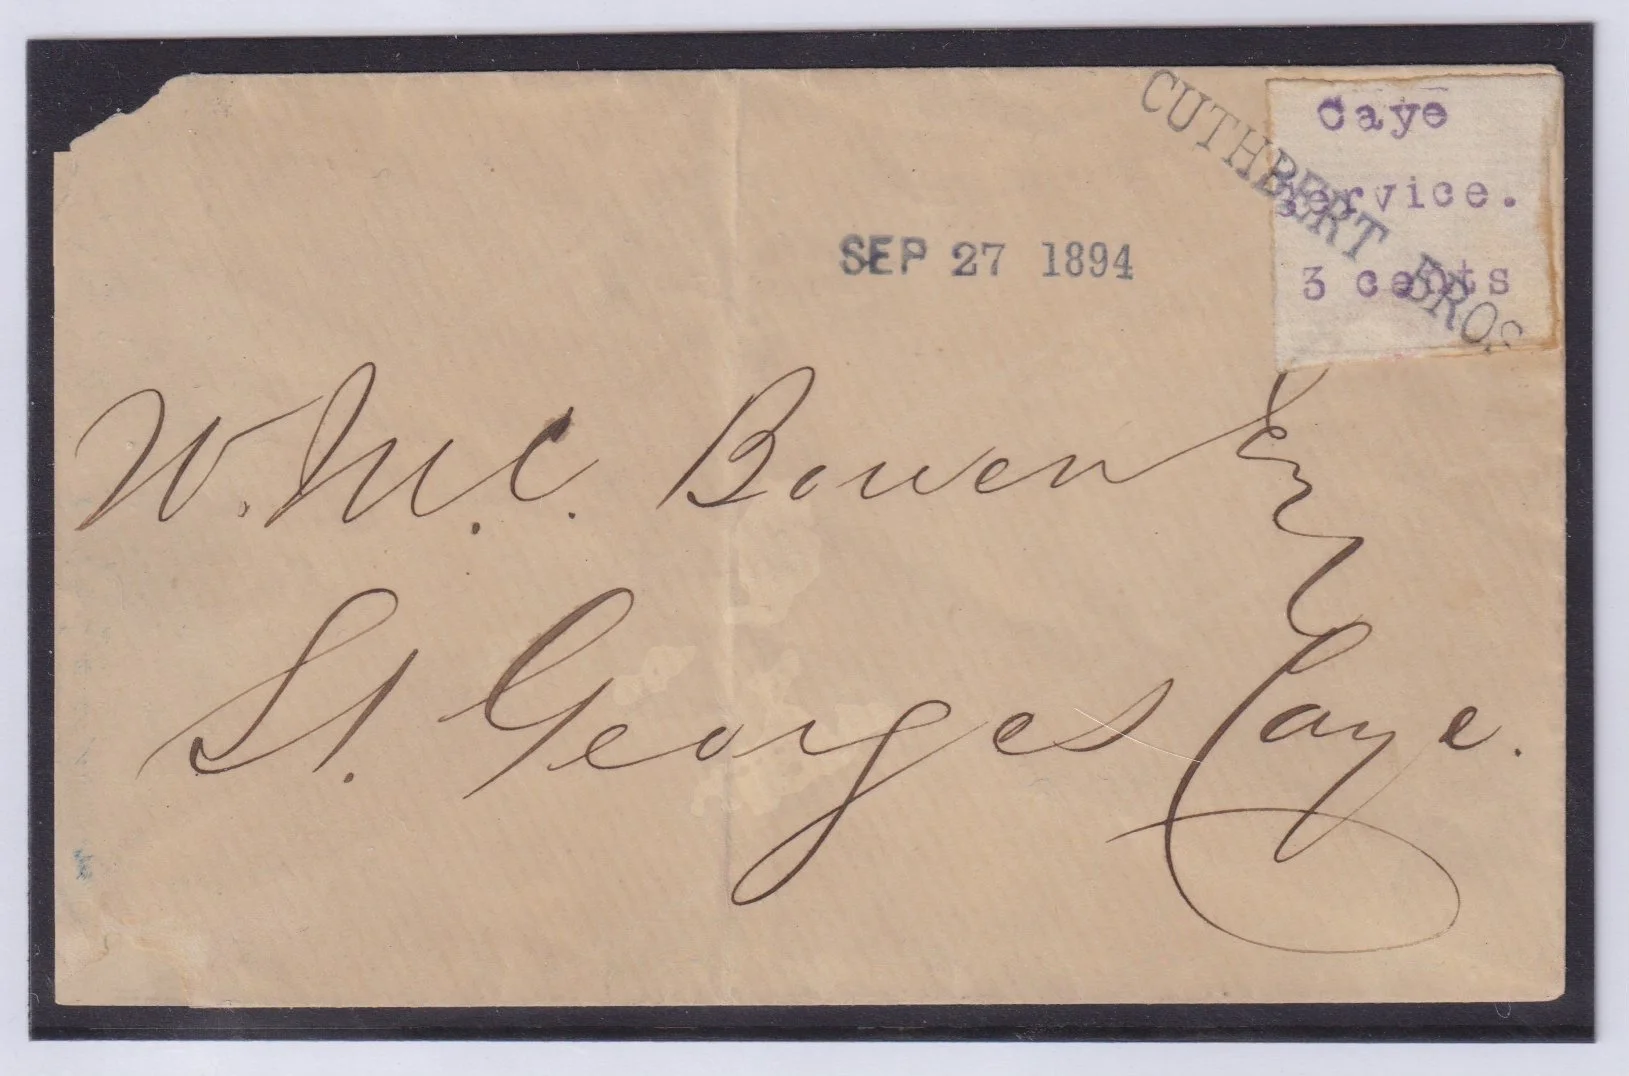 CUTHBERT BROS
Caye
Service.
3 cents
SEP 27 1894
W. M. C. Bowen Esq
St. Georges Caye.